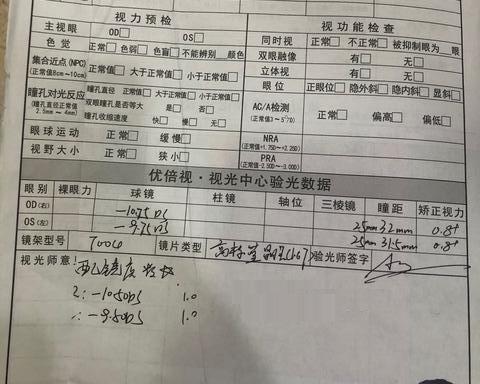 视力预检 视功能检查
主视眼 OD□ OS□ 同时视 正常□ 不正常□ 被抑制眼为__眼
色觉 正常□ 色弱□ 色盲□ 不能辨别__颜色 双眼融像 有□ 无□
集合近点(NPC) (正常值8cm~10cm) 正常值□ 大于正常值□ 小于正常值□ 立体视 有□ 无□
眼位 正眼位□ 隐外斜□ 隐内斜□ 显斜□
瞳孔对光反应 瞳孔直径正常值 2.5mm~4mm
瞳孔直径 正常值□ 大于正常值□ 小于正常值□
双眼瞳孔是否等大 是□ 否□
瞳孔收缩速度 快□ 慢□ 无□
AC/A检测 正常□ 偏高□ 偏低□
眼球运动 正常□ 缓慢□ NRA (正常值+1.75D~+2.25D)
视野大小 正常□ 狭小□ PRA (正常值-2.50D~-3.00D)
优倍视·视光中心验光数据
眼别 裸眼力 球镜 柱镜 轴位 三棱镜 瞳距 矫正视力
OD(右) -10.75DS 25mm 32mm 0.8+
OS(左) -9.75DS 25mm 31.5mm 0.8+
镜架型号 镜片类型 验光师签字
视光师意:
-10.50DS 1.0
-9.50DS 1.0